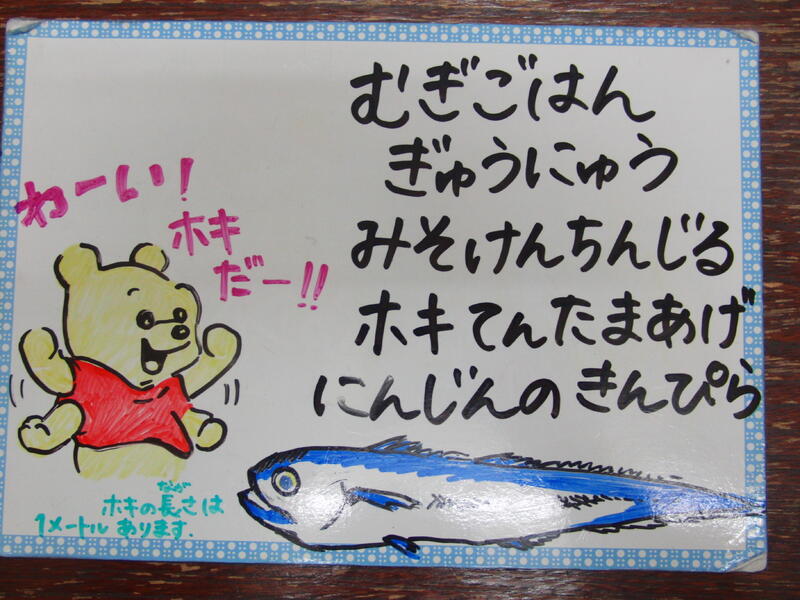 むぎごはん
ぎゅうにゅう
みそけんちんじる
ホキてんたまあげ
にんじんのきんぴら
わーい！
ホキ
だー!!
なが
ホキの長さは
1メートルあります.